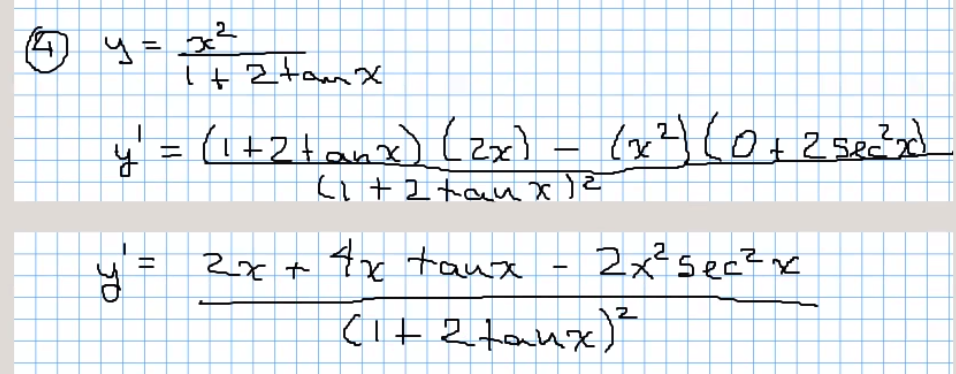 ④ y = x² / (1 + 2 tan x)
y' = (1 + 2 tan x)(2x) - (x²)(0 + 2 sec² x) / (1 + 2 tan x)²
y' = 2x + 4x tan x - 2x² sec² x / (1 + 2 tan x)²